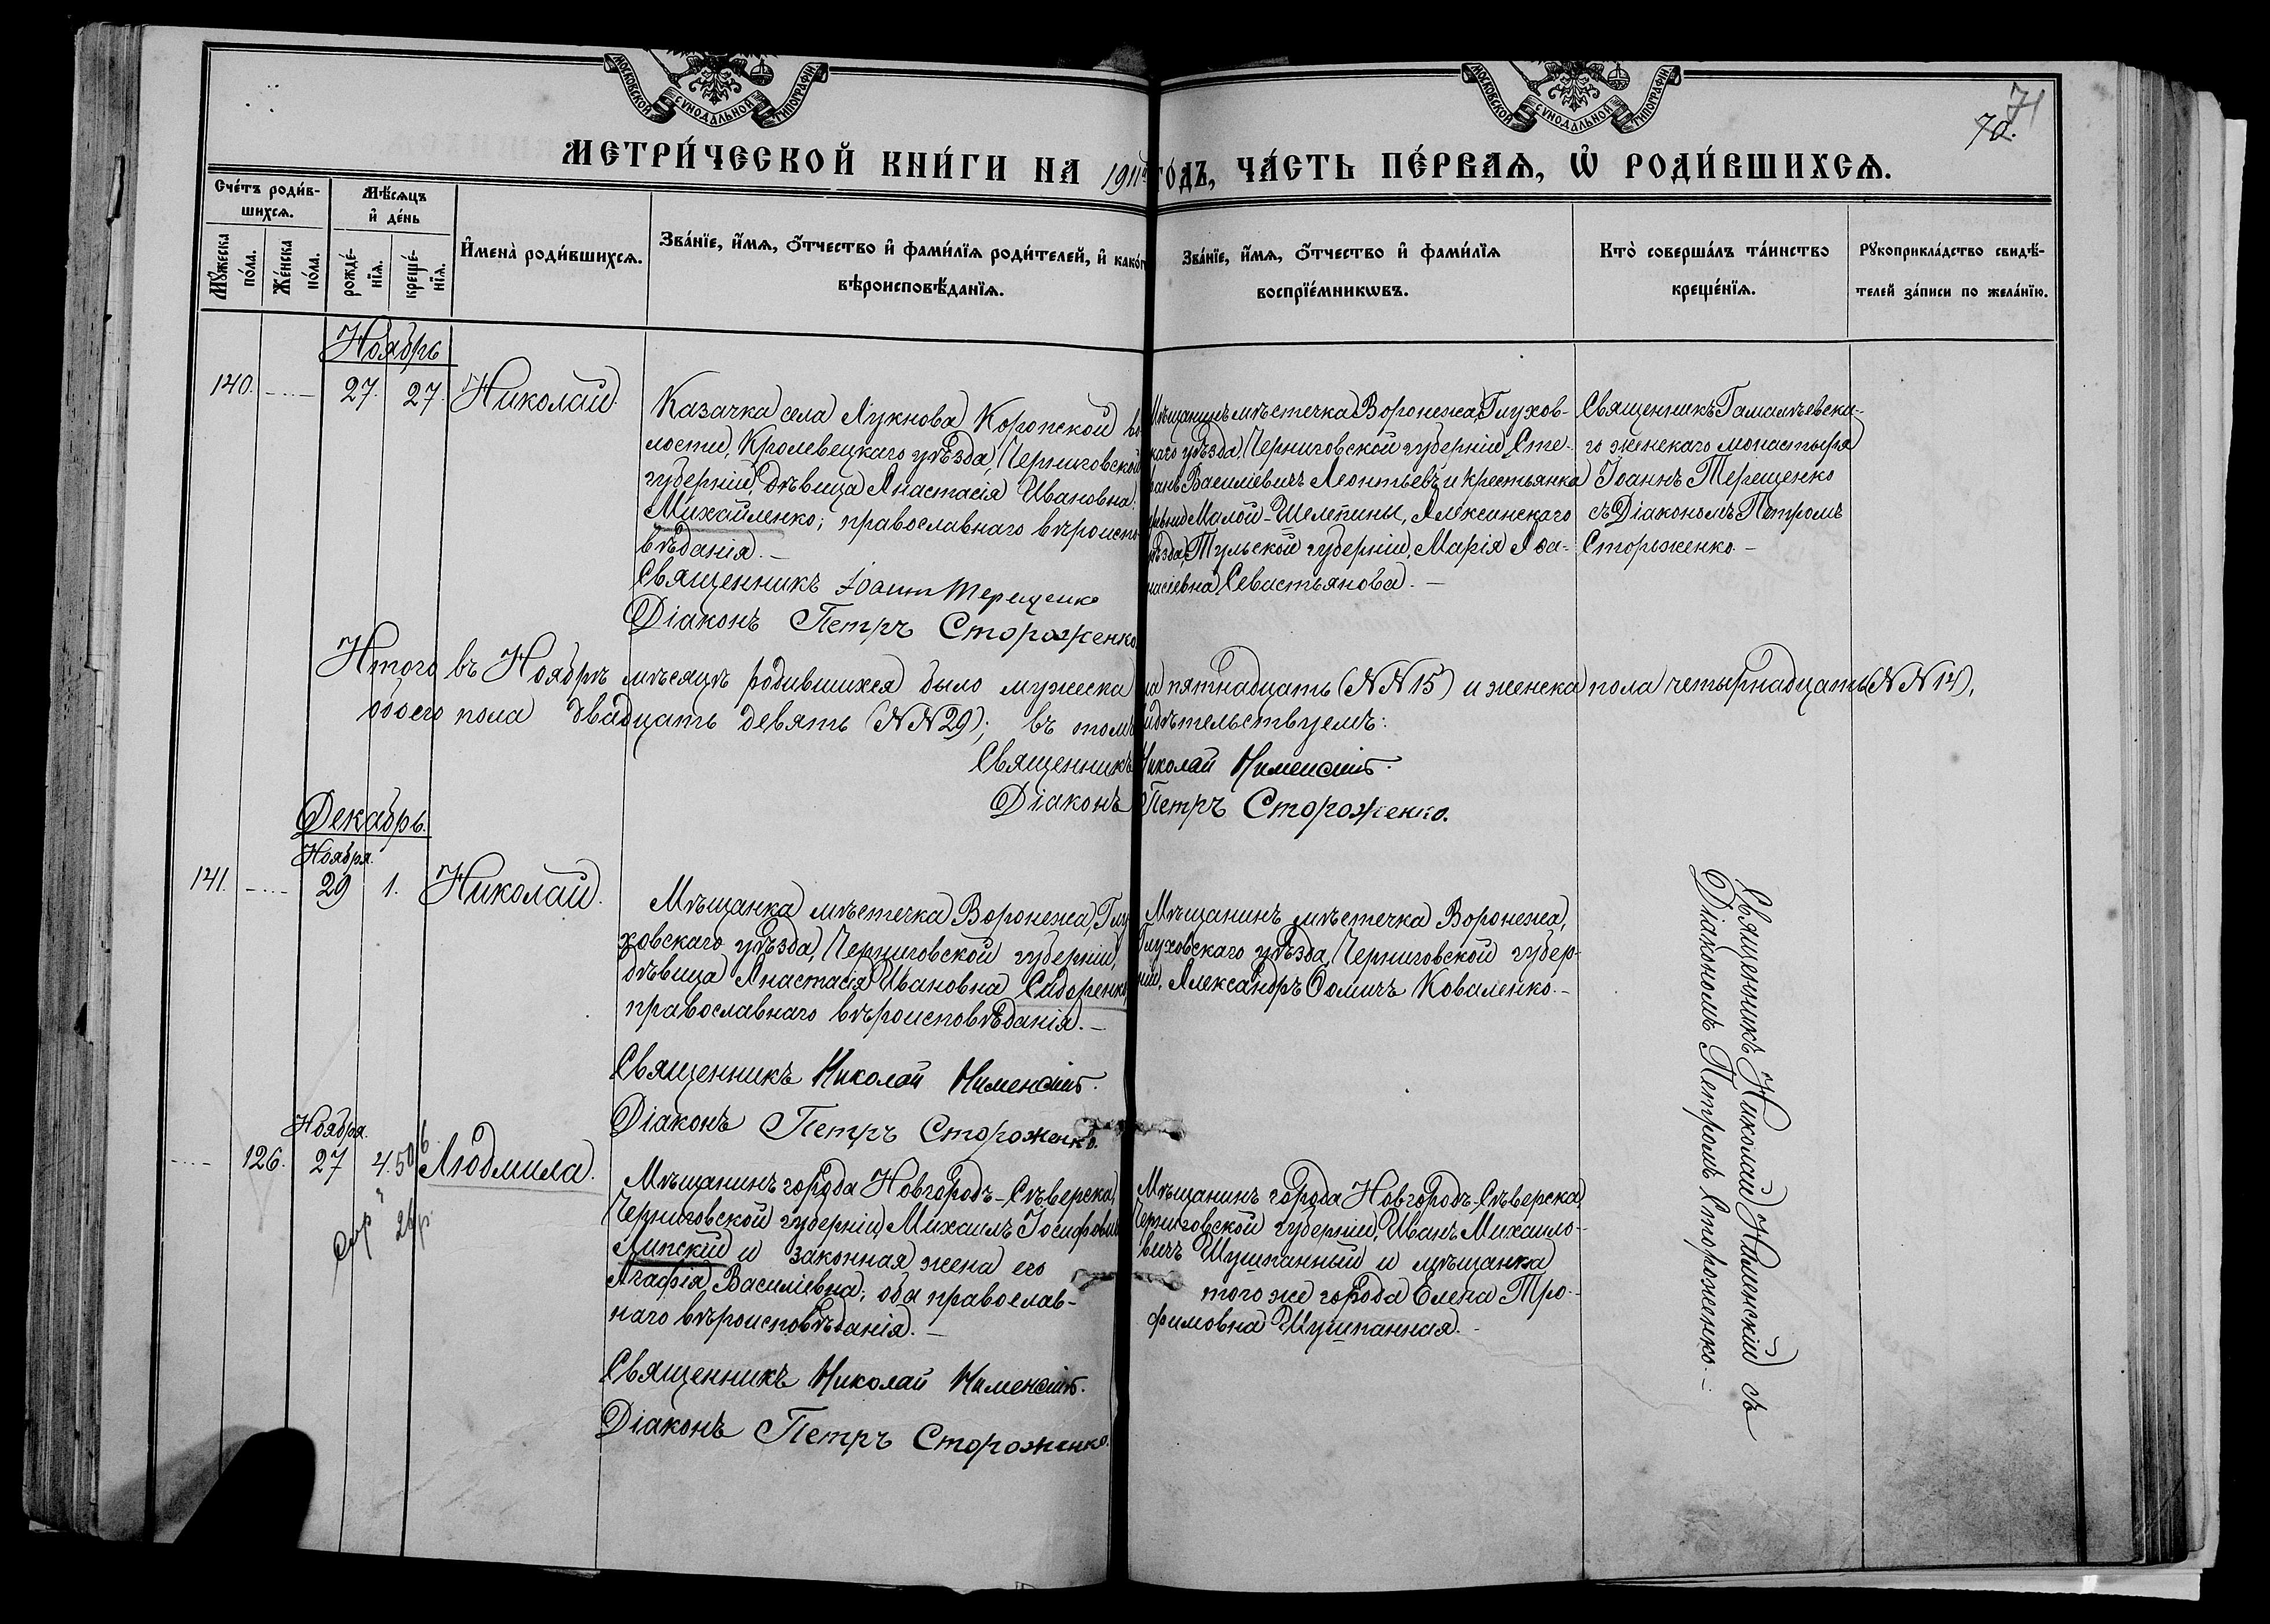 МОСКОВСКОЙ СУНОДАЛЬНОЙ ТИПОГРАФІИ.
МОСКОВСКОЙ СУНОДАЛЬНОЙ ТИПОГРАФІИ.
71
70.
МЕТРИ́ЧЕСКОЙ КНИ́ГИ НА 1911й ГОДЪ, ЧА́СТЬ ПЕ́РВАѦ, Ѡ҆ РОДИ́ВШИХСѦ.
Сче́тъ роди́в-
шихсѧ.
Мѣ́сѧцъ
и҆ де́нь
Мꙋ́жеска
по́ла.
Же́нска
по́ла.
рожде́-
нїѧ.
креще́-
нїѧ.
И҆мена̀ роди́вшихсѧ.
Зва́нїе, и҆́мѧ, ѻ҆́тчество и҆ фами́лїѧ роди́телей, и҆ како́г
вѣроисповѣ́данїѧ.
Зва́нїе, и҆́мѧ, ѻ҆́тчество и҆ фами́лїѧ
воспрїе́мникѡвъ.
Кто̀ соверша́лъ та́инство
креще́нїѧ.
Рꙋкоприкла́дство свидѣ́-
телей за́писи по жела́нїю.
Ноябрь
140.
27.
27.
Николай.
Казачка села Лукнова Коропской во
лости, Кролевецкаго уѣзда, Черниговской
губерніи, дѣвица Анастасія Ивановна
Михайленко; православнаго вѣроиспо
вѣданія.–
Священникъ Іоаннъ Терещенко
Діаконъ Петръ Стороженко.
Мѣщанинъ мѣстечка Воронежа, Глухов-
скаго уѣзда, Черниговской губерніи, Сте-
фанъ Василіевичъ Леонтьевъ и крестьянка
Малой-Шелепины, Алексинскаго
уѣзда, Тульской губерніи, Марія Аѳа-
насіевна Севастьянова.–
Священникъ Гамалѣевска-
го женскаго монастыря
Іоаннъ Терещенко
съ Діакономъ Петромъ
Стороженко.–
Итого въ Ноябрѣ мѣсяцѣ родившихся было мужеска пола пятнадцать (NN 15) и женска пола четырнадцать (NN 14),
обоего пола двадцать девять (NN 29); въ томъ свидѣтельствуемъ:
Священникъ Николай
Діаконъ Петръ Стороженко.
Декабрь.
Ноября.
141.
29
1.
Николай.
Мѣщанка мѣстечка Воронежа, Глу
ховскаго уѣзда, Черниговской губерніи,
дѣвица Анастасія Ивановна Сидоренко,
православнаго вѣроисповѣданія.–
Священникъ Николай
Діаконъ Петръ Стороженко.
Мѣщанинъ мѣстечка Воронежа,
Глуховскаго уѣзда, Черниговской губер-
ніи, Александръ Ѳомичъ Коваленко.–
Священникъ Николай съ
Діакономъ Петромъ Стороженко.–
Ноября.
126.
27
4.
Людмила.
Мѣщанинъ города Новгородъ-Сѣверска,
Черниговской губерніи, Михаилъ Іосифовичъ
Липскій и законная жена его
Агафія Василіевна; оба православ-
наго вѣроисповѣданія.–
Священникъ Николай
Діаконъ Петръ Стороженко.
Мѣщанинъ города Новгородъ-Сѣверска,
Черниговской губерніи, Иванъ Михаило-
вичъ Шушпанный и мѣщанка
того же города Елена Тро-
фимовна Шушпанная.–